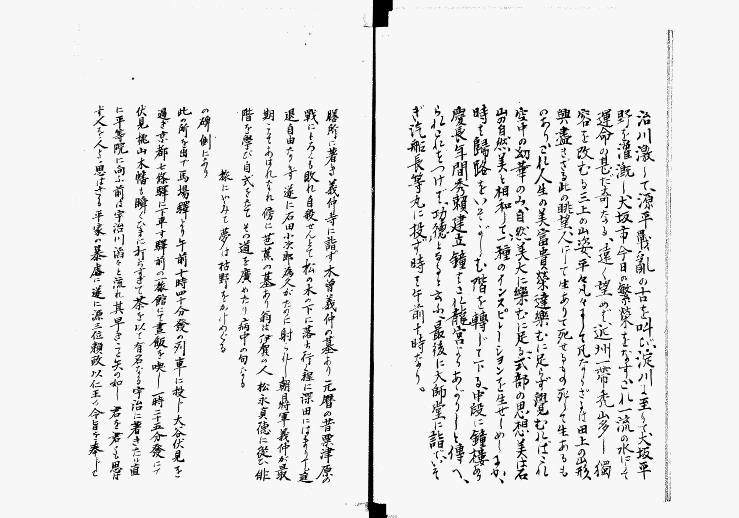 治川激して源平戰亂の古を叫び淀川に至りて大坂平
野を灌漑し大坂市今日の繁榮をなす これ一流の水にして
運命の甚だ奇なる、遠く望めば近州一帶禿山多し獨
容を改むる三上の山姿、平々凡々として凡ならざるは田上の山形
興盡きざる此の眺望人にして生ありて死せるもの死して生あるも
のありこれ人生の美富貴榮達樂むに足らず翻見むればこれ
空中の幻華のみ、自然美大に樂むに足る、式部の思想美は石
山の自然美と相和して一種のインスピレーションを生ぜしめしものか、
時も歸路をいそがしむ階を轉じて下る、中段に鐘樓あり
慶長年間秀頼建立鐘はこれ龍宮よりあがりしと傳へ、
られこれをつけば功徳となると云ふ、最後に大師堂に詣でいそ
ぎ汽船長等丸に投ず時を午前十時なり。
膳所に着き義仲寺に詣ず木曾義仲の墓あり元暦の昔粟津原の
戰にもろくも敗れ自殺せんとて松の木の下に落ち行く程に深田にはまりて進
退自由ならず遂に石田小次郎為久がために射られし朝日將軍義仲が最
期こそあはれなれ傍に芭蕉の墓あり翁は伊賀の人 松永貞徳に從ひ俳
階を學び自式をたて その道を廣めたり病中の句なる
旅にやみて夢は枯野をかけめぐる
の碑側にあり
此の所を出で馬場驛より午前十時四十分發の列車に投じ大谷伏見をす
過ぎ京都七條驛に下車す驛前の一旅館にて晝飯を喫し一時二十五分發にて
伏見桃山木幡も瞬くひまに打ちすぎて茶を以て有名なる宇治に着きたり直
に平等院に向ふ前は宇治川滔々と流れ其早きこと矢の如し 君を君とも思は
ず人を人とも思はざる平家の暴虐に遂に源三位頼政以仁王の令旨を奉じて